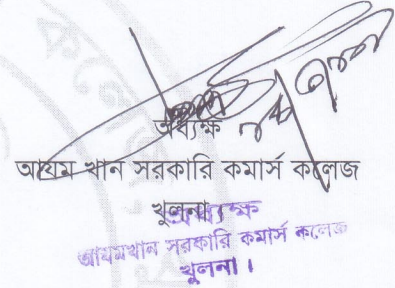 অধ্যক্ষ
আযম খান সরকারি কমার্স কলেজ
খুলনা।
অধ্যক্ষ
আযমখান সরকারি কমার্স কলেজ
খুলনা।